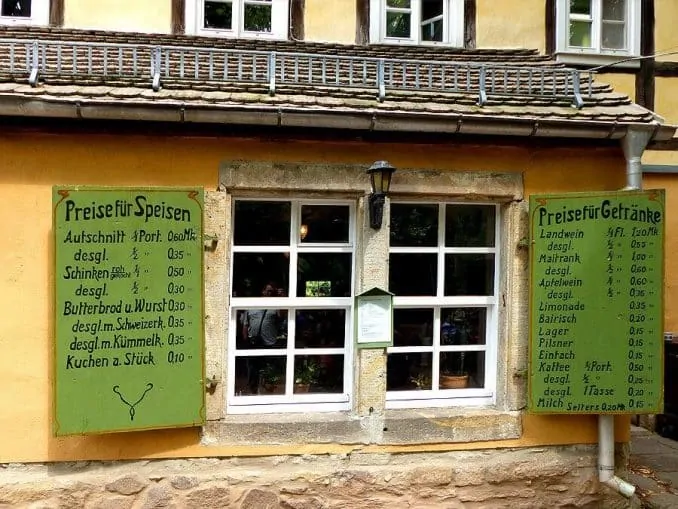 Preise für Speisen
Autschnitt ⅟₁ Port. 0,60 Mk
desgl. ½ " 0,35 "
Schinken roh gekocht ⅟₁ " 0,50 "
desgl. ½ " 0,30 "
Butterbrod u. Wurst 0,30 "
desgl. m. Schweizerk. 0,35 "
desgl. m. Kümmelk. 0,35 "
Kuchen a. Stück 0,10 "
Preise für Getränke
Landwein ⅟₁ Fl. 1,20 Mk
desgl. ½ " 0,55 "
Maitrank ⅟₁ " 1,00 "
desgl. ½ " 0,60 "
Apfelwein ⅟₁ " 0,60 "
desgl. ½ " 0,35 "
Limonade 0,35 "
Bairisch 0,20 "
Lager 0,15 "
Pilsner 0,15 "
Einfach 0,15 "
Kaffee ⅟₁ Port. 0,50 "
desgl. ½ " 0,25 "
desgl. 1 Tasse 0,20 "
Milch 0,15 "
Selters 0,20 Mk